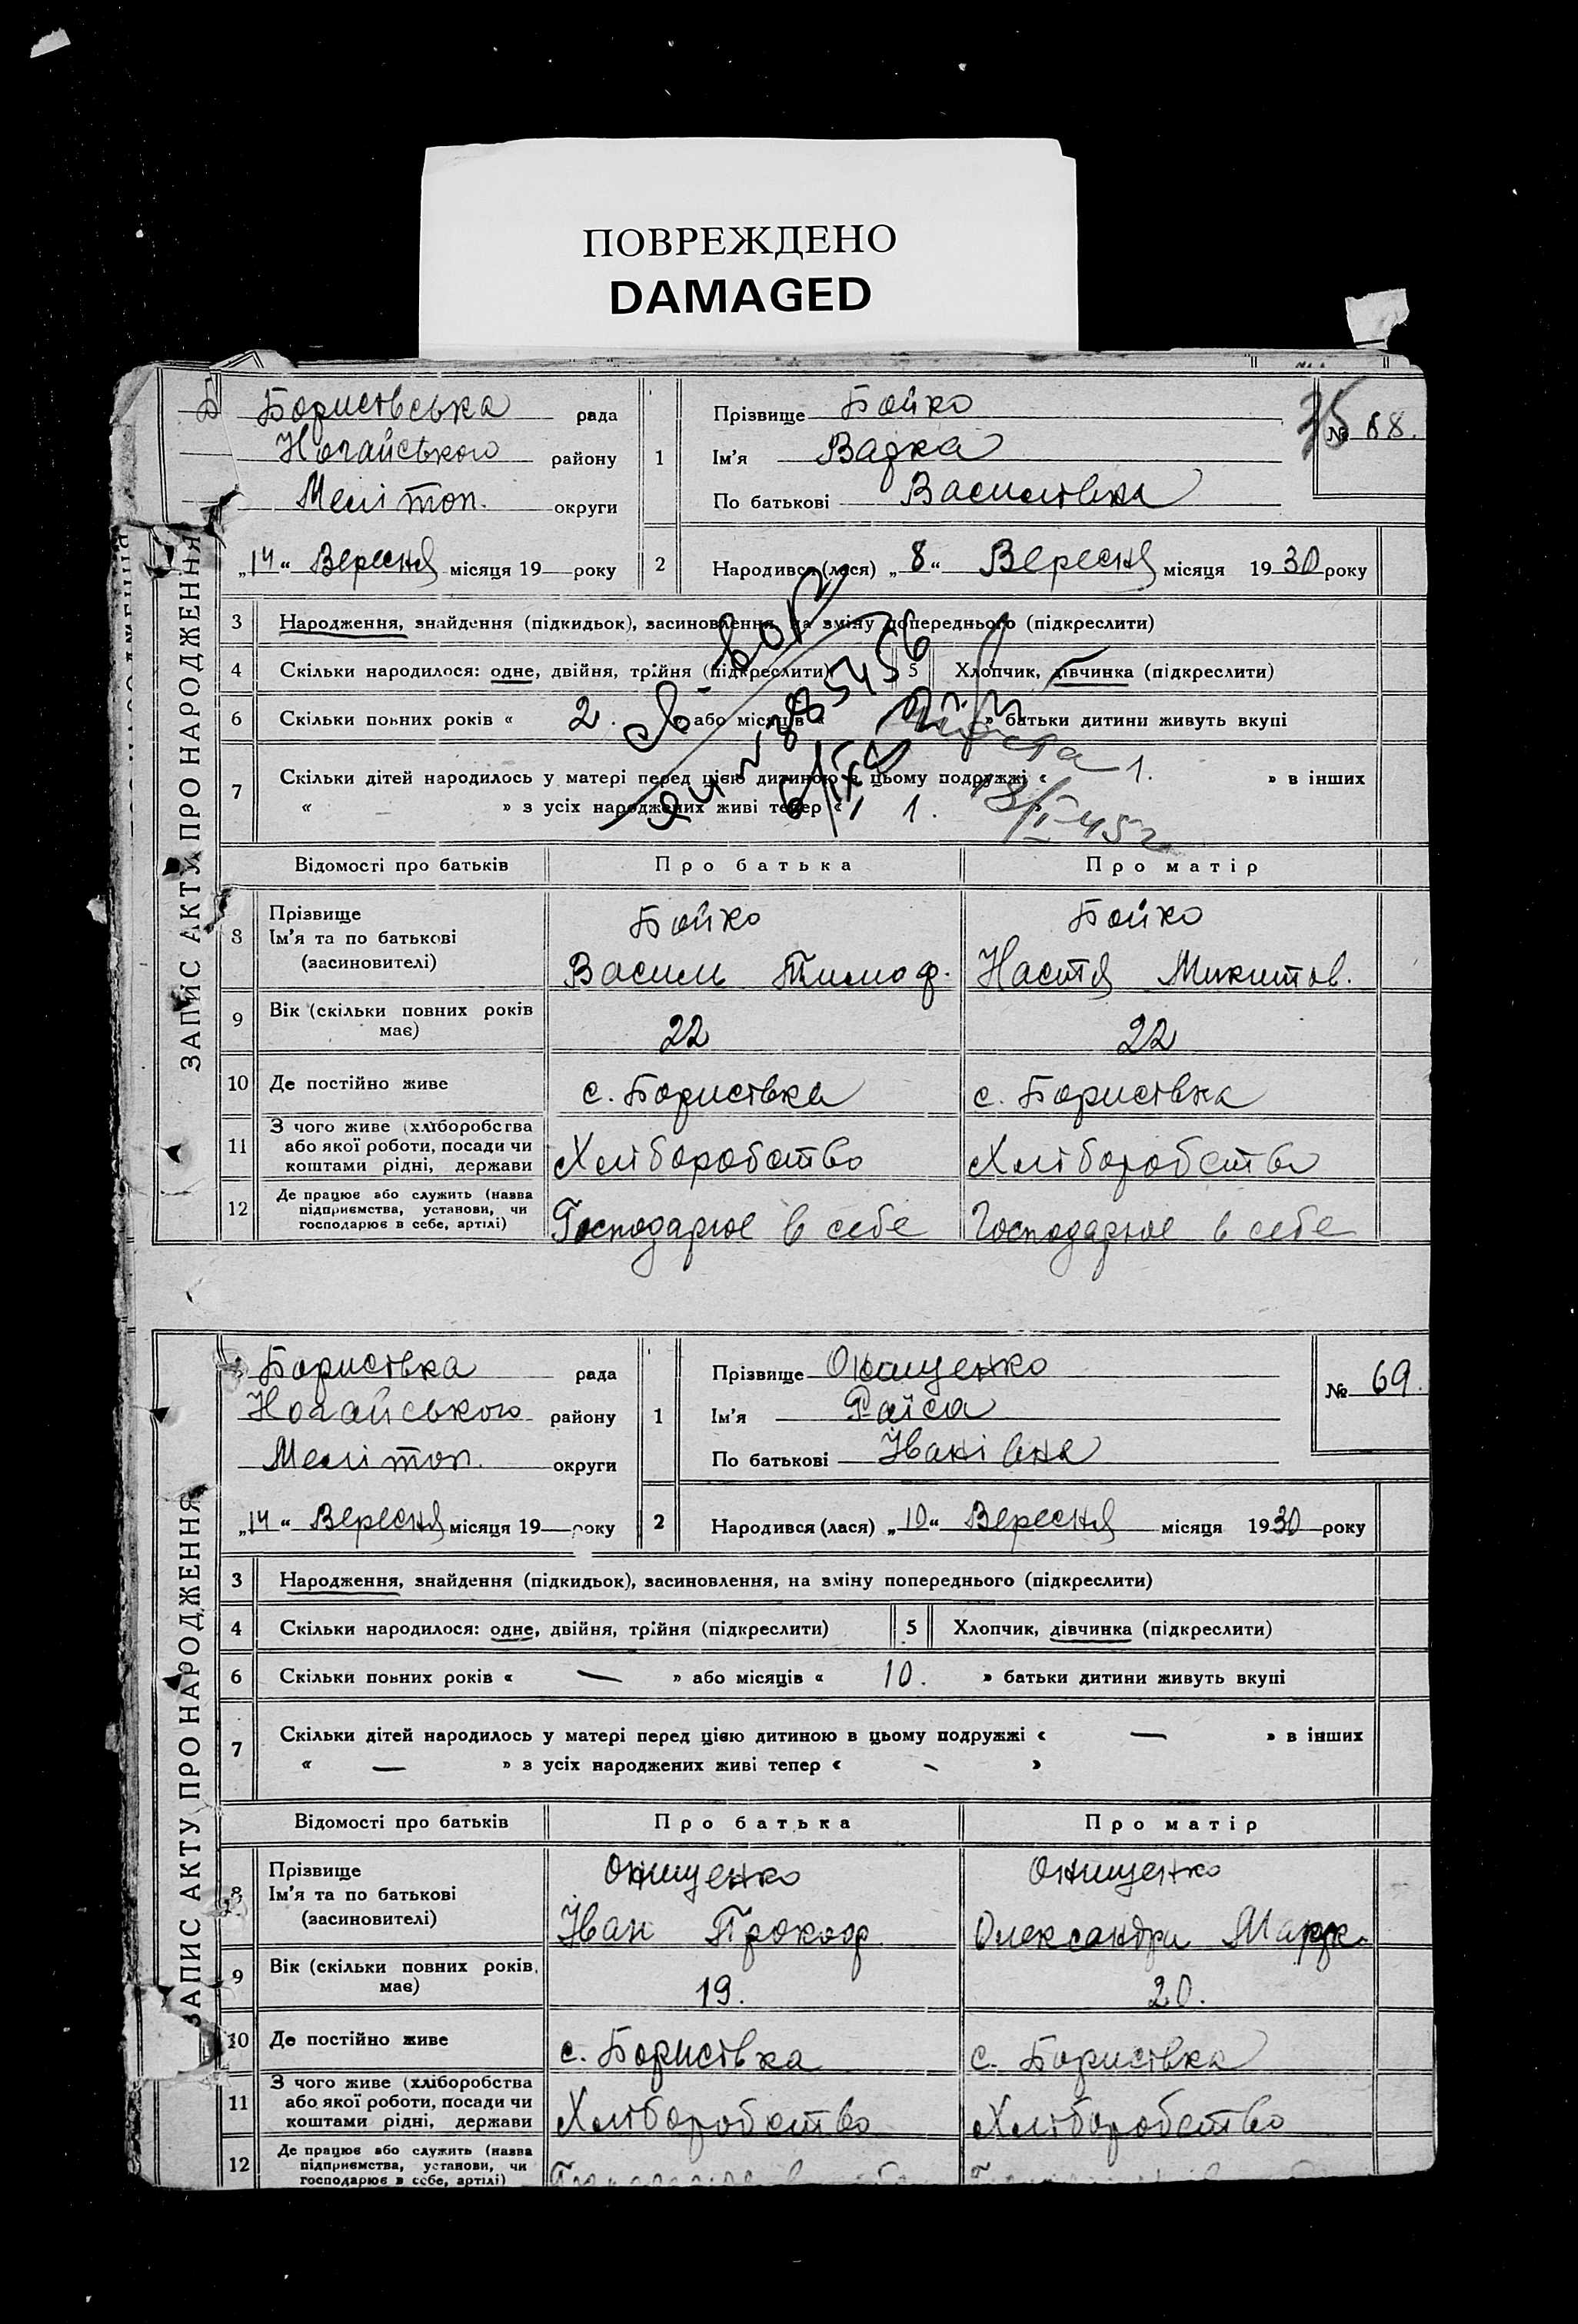 ПОВРЕЖДЕНО
DAMAGED
Бориствська рада
Ногайського району
Мелітоп. округи
„14“ Вересня місяця 19 року
ЗАПИС АКТУ ПРО НАРОДЖЕННЯ
1 Прізвище Бойко
Ім’я Вадка
По батькові Василівна
№ 68.
2 Народився (лася) „8“ Вересня місяця 1930 року
3 Народження, знайдення (підкидьок), засиновлення, на зміну попереднього (підкреслити)
4 Скільки народилося: одне, двійня, трійня (підкреслити) 5 Хлопчик, дівчинка (підкреслити)
6 Скільки повних років « 2. » або місяців « » батьки дитини живуть вкупі
7 Скільки дітей народилось у матері перед цією дитиною в цьому подружжі « 1. » в інших
« » з усіх народжених живі тепер « 1.
Відомості про батьків Про батька Про матір
8 Прізвище Ім’я та по батькові (засиновителі)
Бойко Бойко
Василь Тимоф. Настя Микитов.
9 Вік (скільки повних років має) 22 22
10 Де постійно живе с. Бориствка с. Бориствка
11 З чого живе (хліборобства або якої роботи, посади чи коштами рідні, держави Хліборобство Хліборобство
12 Де працює або служить (назва підприємства, установи, чи господарює в себе, артілі) Господарює в себе Господарює в себе
Бориствка рада
Ногайського району
Мелітоп. округи
„14“ Вересня місяця 19 року
ЗАПИС АКТУ ПРО НАРОДЖЕННЯ
1 Прізвище Онищенко
Ім’я Раїса
По батькові Іванівна
№ 69.
2 Народився (лася) „10“ Вересня місяця 1930 року
3 Народження, знайдення (підкидьок), засиновлення, на зміну попереднього (підкреслити)
4 Скільки народилося: одне, двійня, трійня (підкреслити) 5 Хлопчик, дівчинка (підкреслити)
6 Скільки повних років « — » або місяців « 10. » батьки дитини живуть вкупі
7 Скільки дітей народилось у матері перед цією дитиною в цьому подружжі « — » в інших
« — » з усіх народжених живі тепер « - »
Відомості про батьків Про батька Про матір
8 Прізвище Ім’я та по батькові (засиновителі)
Онищенко Онищенко
Іван Прокоф Олександра
9 Вік (скільки повних років має) 19. 20.
10 Де постійно живе с. Бориствка с. Бориствка
11 З чого живе (хліборобства або якої роботи, посади чи коштами рідні, держави Хліборобство Хліборобство
12 Де працює або служить (назва підприємства, установи, чи господарює в себе, артілі)